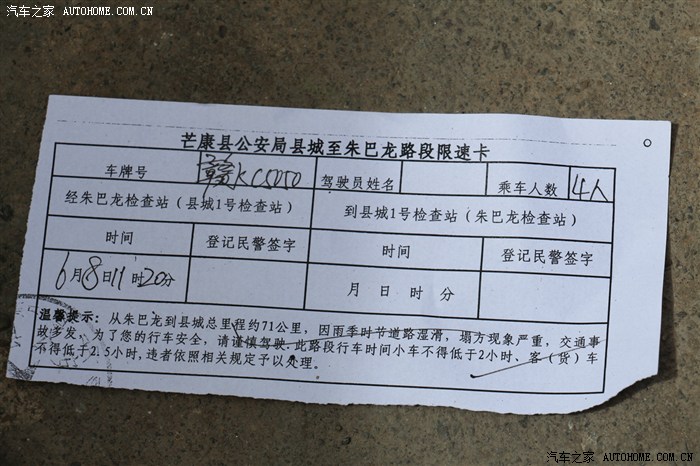 汽车之家 AUTOHOME.COM.CN
芒康县公安局县城至朱巴龙路段限速卡
车牌号 赣KC5050 驾驶员姓名 乘车人数 4人
经朱巴龙检查站（县城1号检查站） 到县城1号检查站（朱巴龙检查站）
时间 登记民警签字 时间 登记民警签字
6月8日11时20分 月 日 时 分
温馨提示：从朱巴龙到县城总里程约71公里，因雨季时节道路湿滑，塌方现象严重，交通事
故多发，为了您的行车安全，请谨慎驾驶.此路段行车时间小车不得低于2小时、客（货）车
不得低于2.5小时,违者依照相关规定予以处理。
汽车之家 AUTOHOME.COM.CN